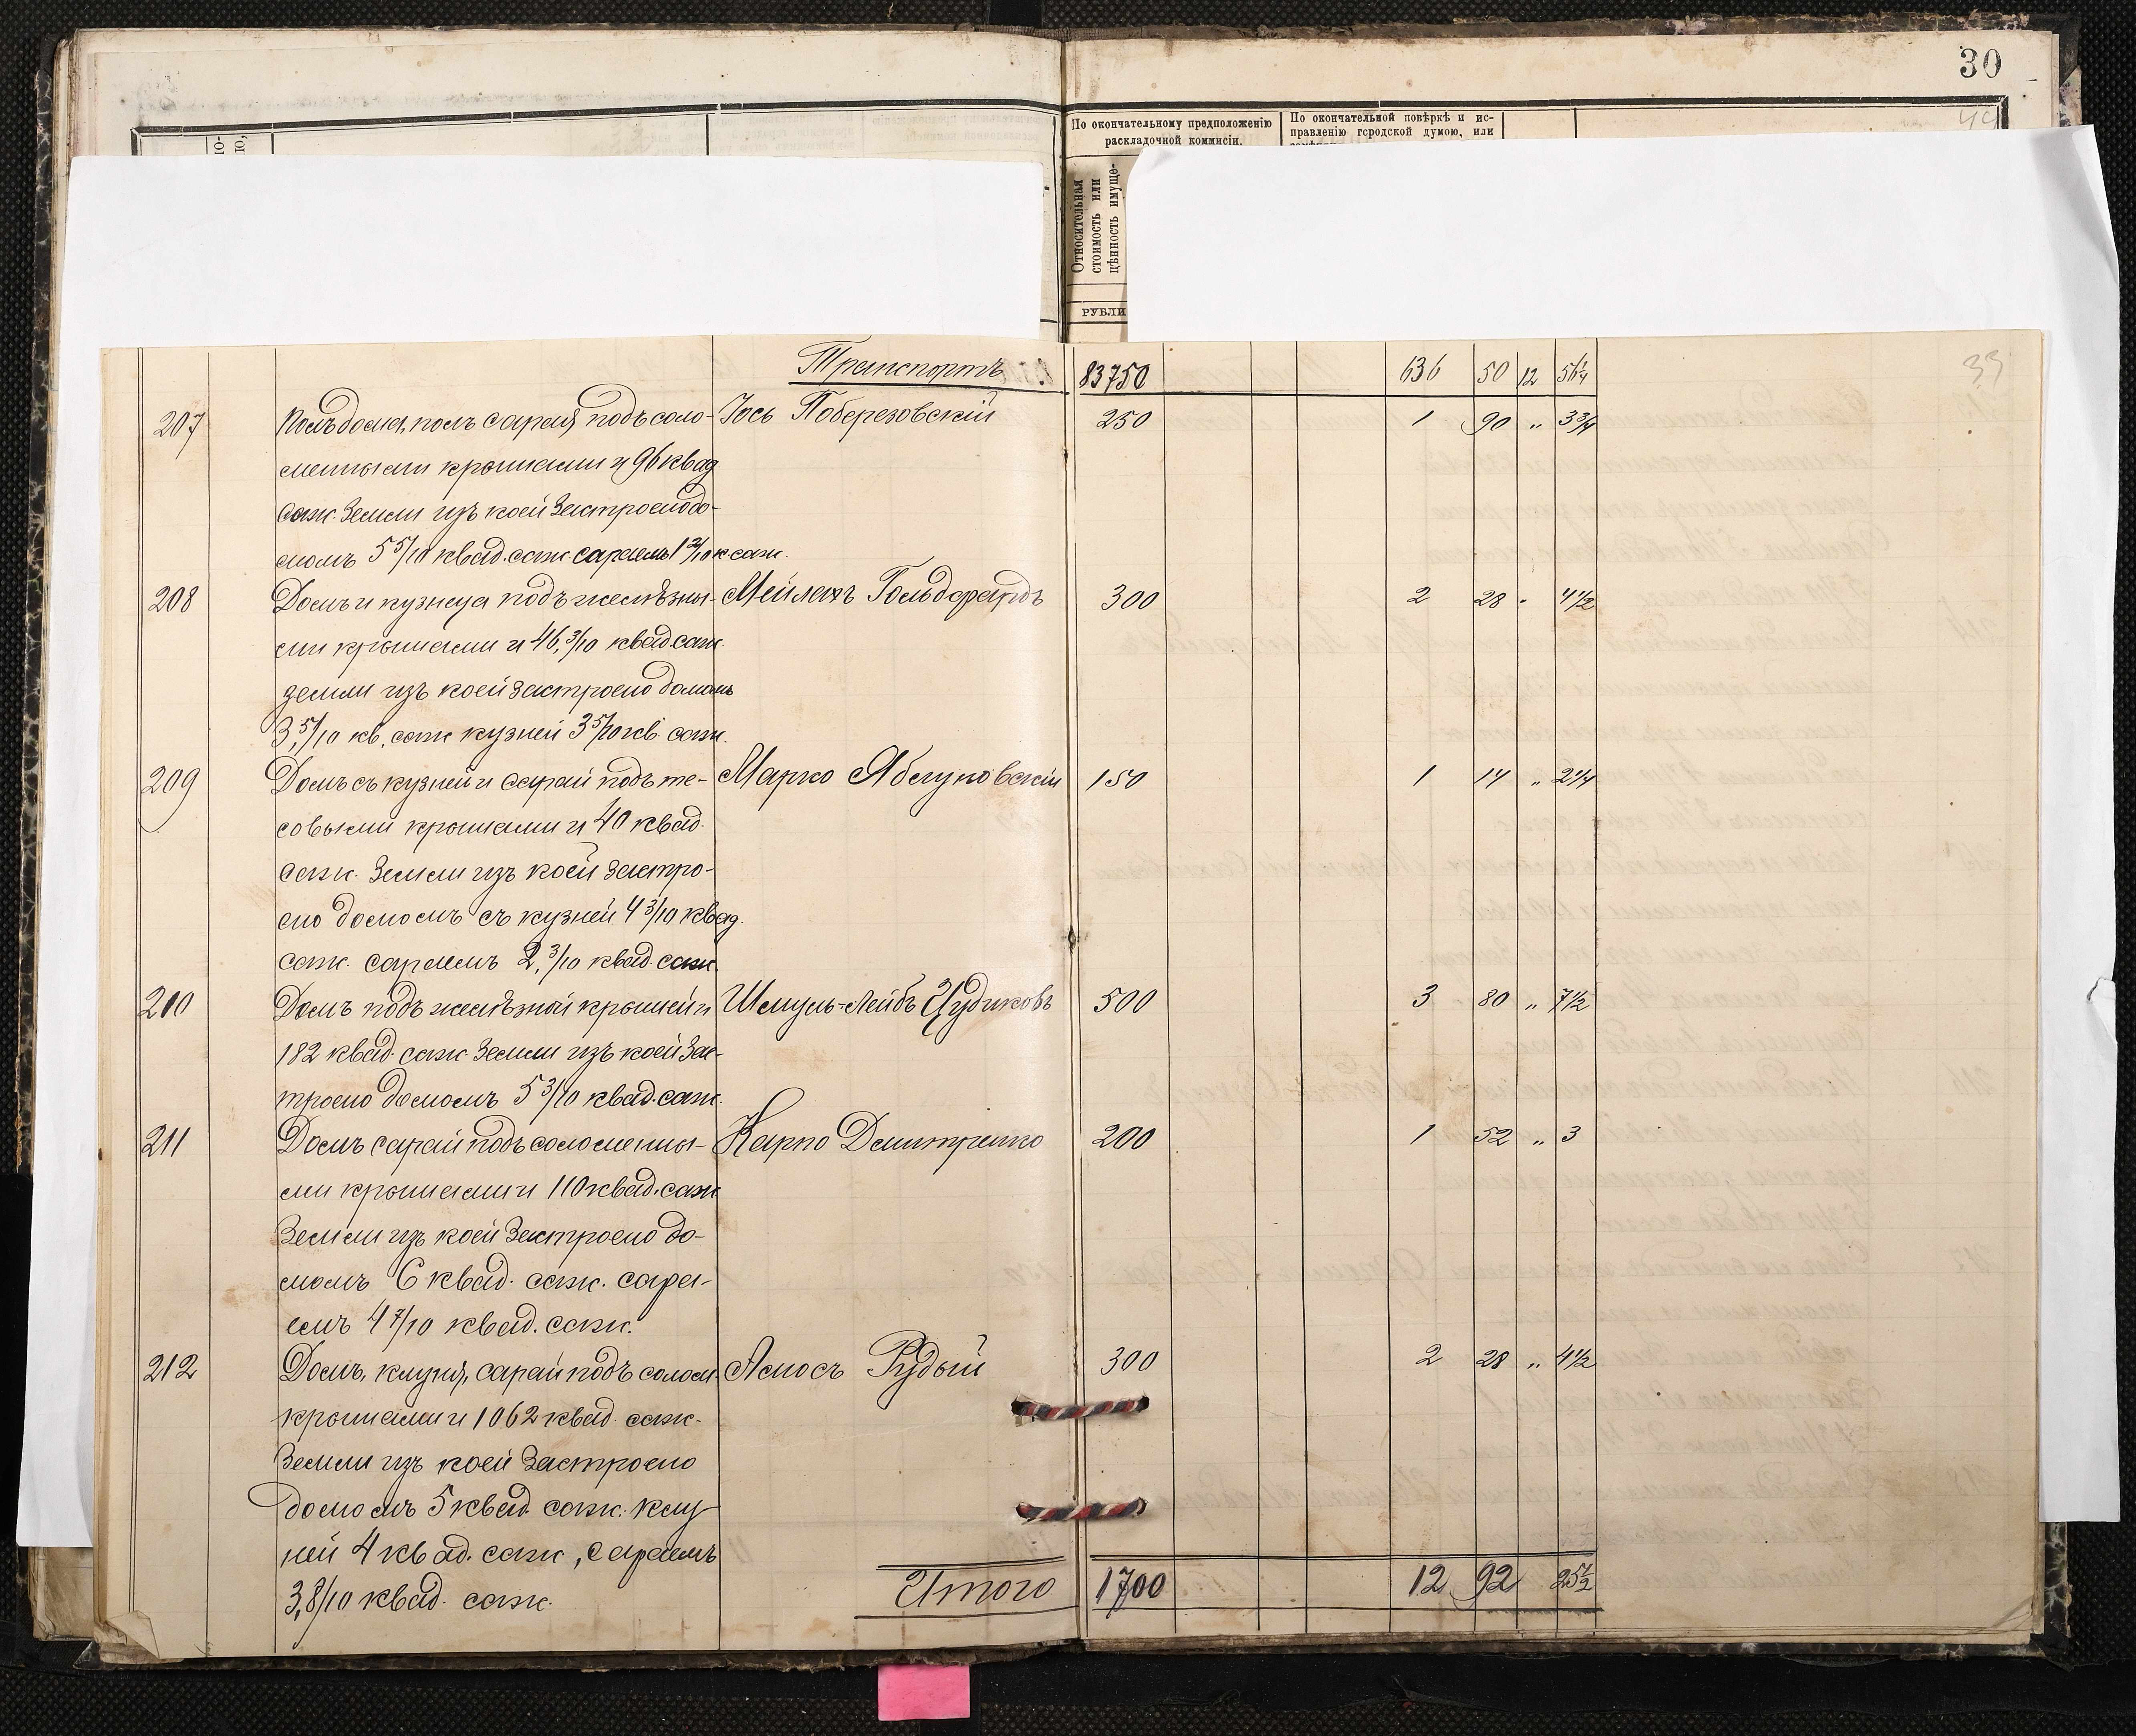 30
По окончательному предположенію
раскладочной коммисіи.
По окончательной повѣркѣ и ис-
правленію городской думою, или
Относительная
стоимость или
цѣнность имуще-
РУБЛИ
33
Транспортъ 83750 636 50 12 56¼
207 Полъ дома, полъ сарая, подъ соло- Іось Поберезовскій 250 1 90 „ 3¾
менными крышами и 96 квад.
саж. земли изъ коей застроено до-
момъ 5 5/10 квад. саж. сараемъ 1 2/10 к. саж.
208 Домъ и кузница подъ желѣзны- Мейлахъ Гольдфарбъ 300 2 28 „ 4½
ми крышами и 46,3/10 квад. саж.
земли изъ коей застроено домомъ
3,5/10 кв. саж кузней 3 5/10 кв. саж.
209 Домъ съ кузней и сарай подъ те- Марко Яблуновскій 150 1 14 „ 2¼
совыми крышами и 40 квад.
саж. земли изъ коей застро-
ено домомъ съ кузней 4 3/10 квад.
саж. сараемъ 2,3/10 квад. саж.
210 Домъ подъ желѣзной крышей и Шмуль-Лейбъ 500 3 80 „ 7½
182 квад. саж земли изъ коей зас-
троено домомъ 5 3/10 квад. саж.
211 Домъ сарай подъ соломенны- Карпо Дмитренко 200 1 52 „ 3
ми крышами и 110 квад. саж
земли изъ коей застроено до-
момъ 6 квад. саж. сара-
емъ 4 7/10 квад. саж.
212 Домъ, клуня, сарай подъ солом. Амосъ Рудый 300 2 28 „ 4½
крышами и 1062 квад. саж.
земли изъ коей застроено
домомъ 5 квад. саж. клу-
ней 4 квад. саж, сараемъ
3,8/10 квад. саж.
Итого 1700 12 92 25½